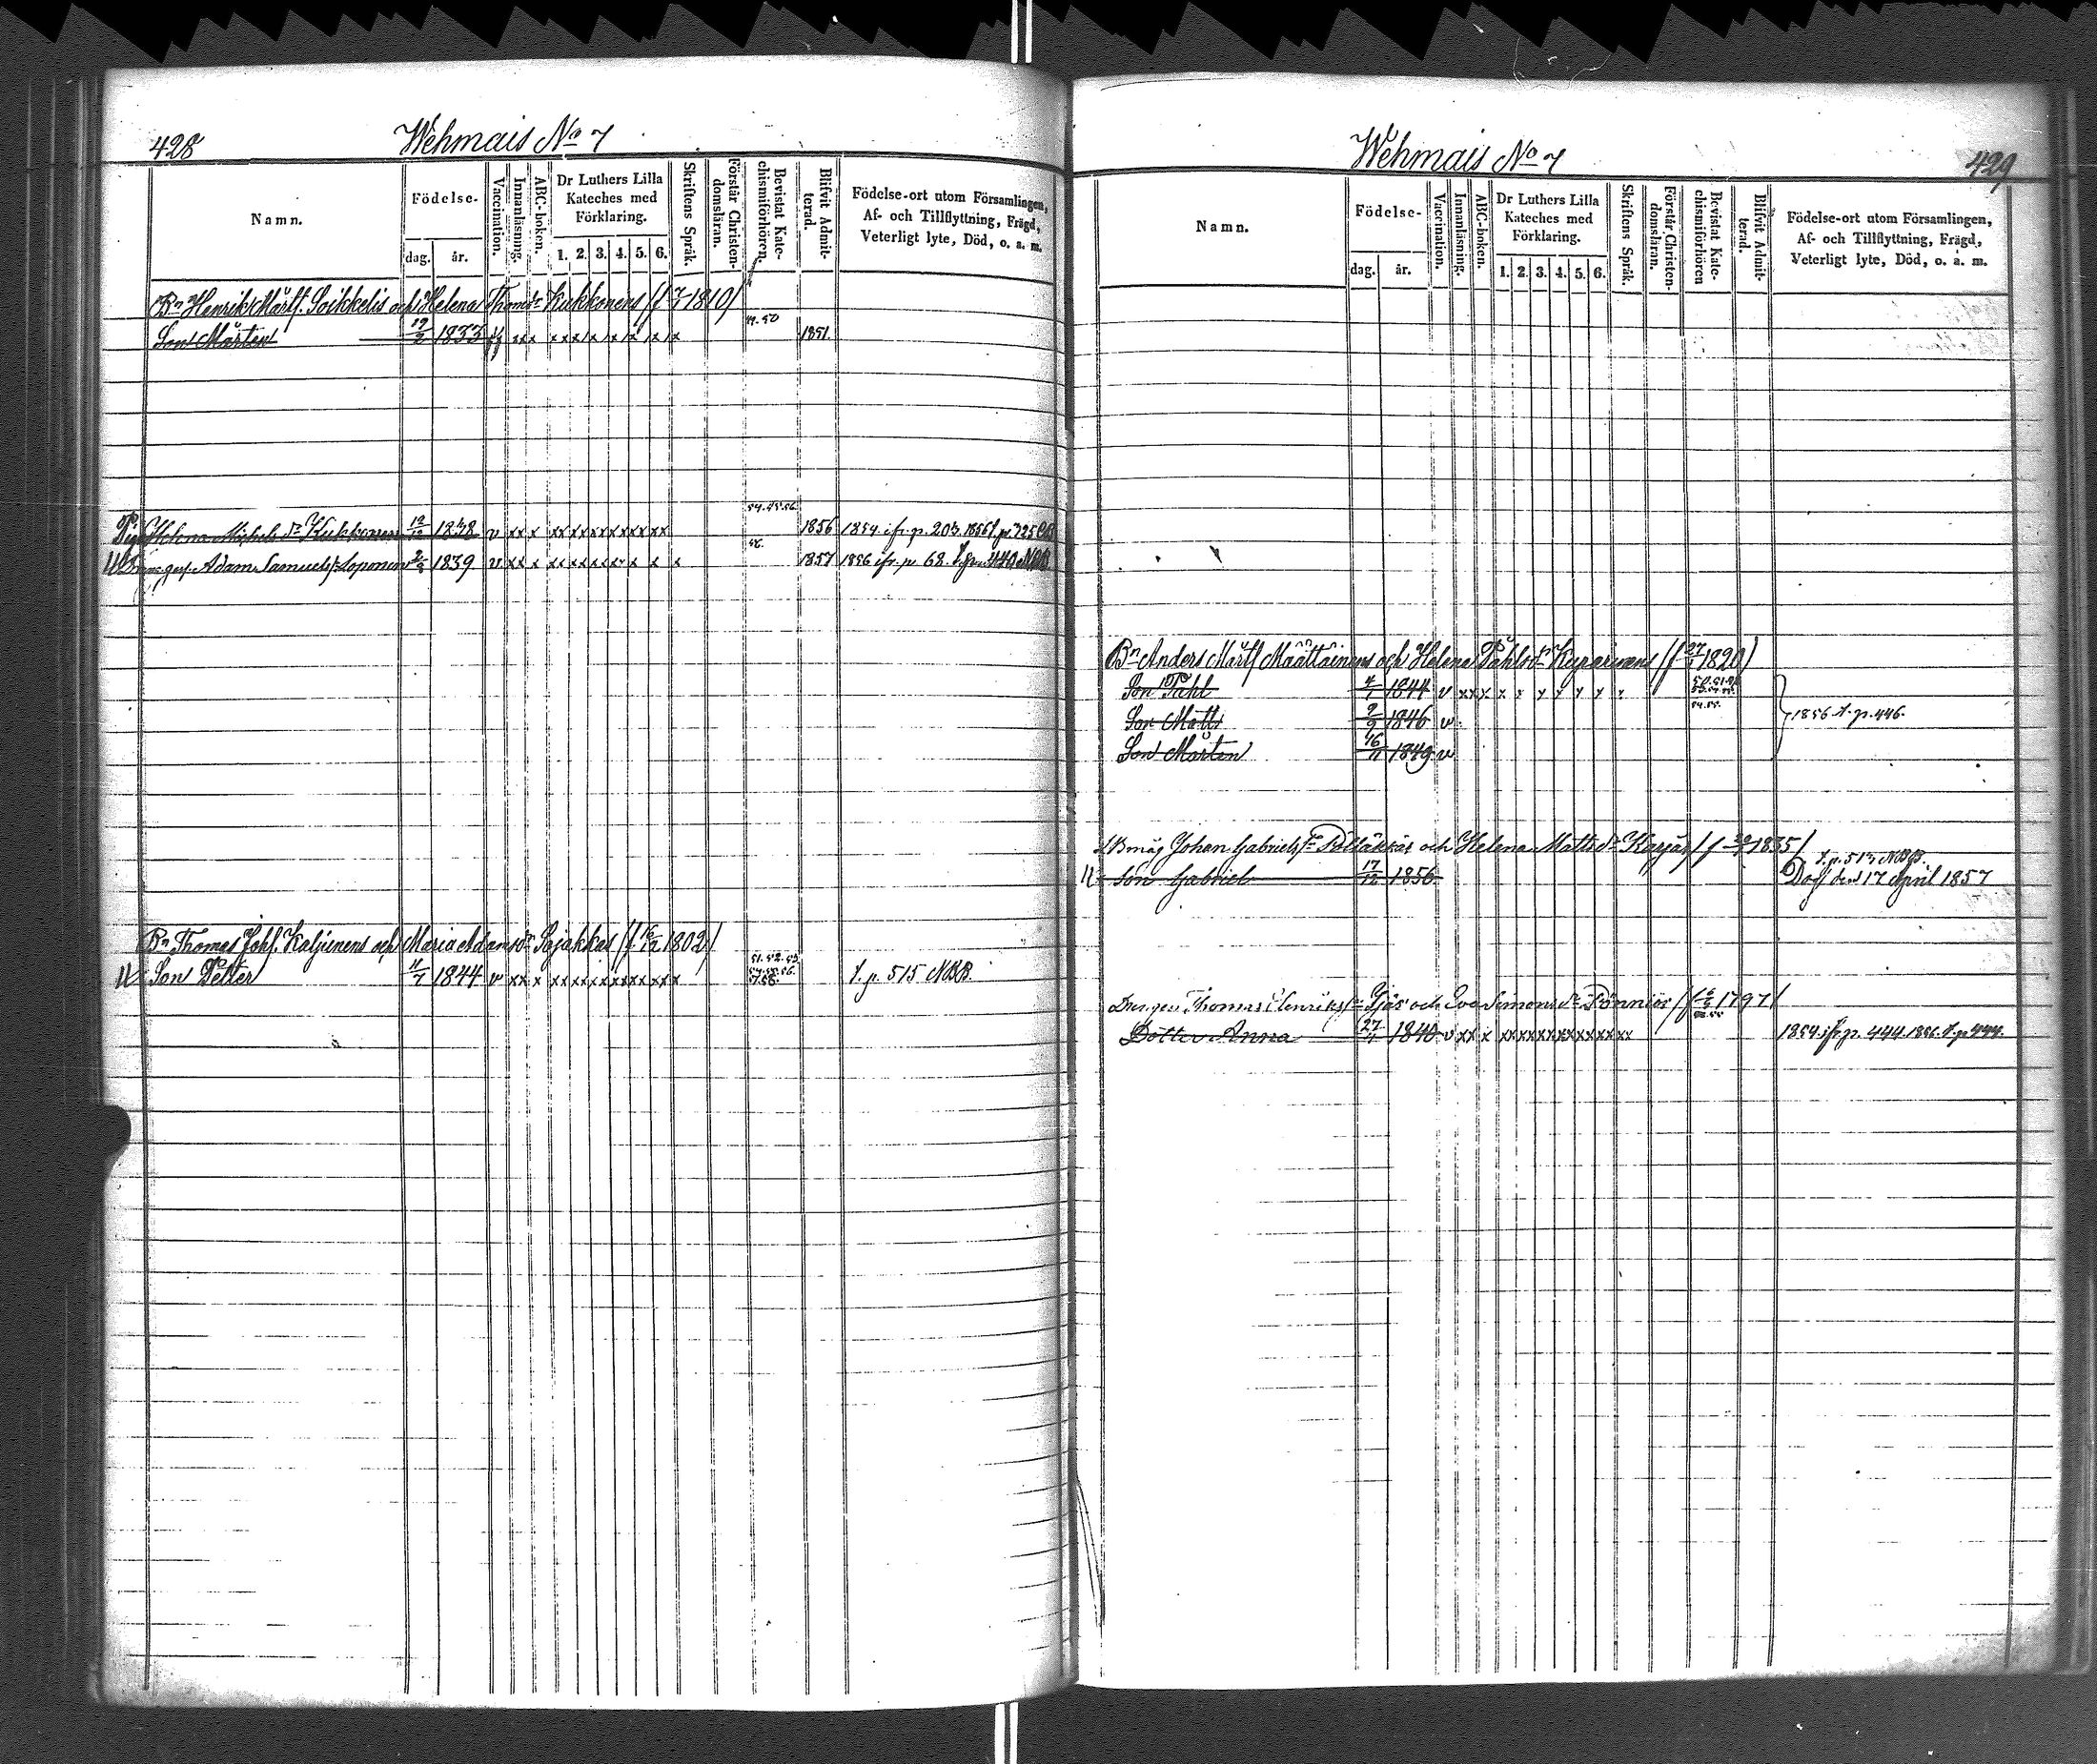 428
Wehmais No 7
Namn.
Födelse-
dag.
år.
Vaccination.
Innanläsning.
ABC-boken.
Dr Luthers Lilla
Kateches med
Förklaring.
1. 2. 3. 4. 5. 6.
Skriftens Språk.
Förstår Christen-
domsläran.
Bevistat Kate-
chismiförhören.
Blifvit Admit-
terad.
Födelse-ort utom Församlingen,
Af- och Tillflyttning, Frägd,
Veterligt lyte, Död, o. a. m.
Bn Henrik Mårtf. Soikkelis och Helena Thomsdr Kukkonens (f 7/1 1810)
Son Mårten 19/2 1833 xxx x x x x x x x x 49.50 1851.
54.55.56.
Helena Michelsdr Kukkonen 12/12 1838 v xx x xxxxxxxxxxxx 1856 1854. ifr. p. 203. 1856 t. p. 325
Adam Samuelsf. Loponen 2/3 1839 v xx x 56. 1857 1856 ifr. p. 68. t. p. 440 NBB.
Bn Thomas Johf. Kaljunens och Maria Adamsdr Sajakkas (f 16/12 1802)
Son Petter 4/7 1844 v xx x xxxxxxxxxxxxx 51.52.53. 54.55.56. 57.58. t. p. 515 NBB.
Wehmais No 7
429
Namn.
Födelse-
dag.
år.
Vaccination.
Innanläsning.
ABC-boken.
Dr Luthers Lilla
Kateches med
Förklaring.
1. 2. 3. 4. 5. 6.
Skriftens Språk.
Förstår Christen-
domsläran.
Bevistat Kate-
chismiförhören
Blifvit Admit-
terad.
Födelse-ort utom Församlingen,
Af- och Tillflyttning, Frägd,
Veterligt lyte, Död, o. a. m.
Bn Anders Mårtf Määttäinens och Helena Påhlsdr (f 27/1 1820)
Son Påhl 4/1 1844 v xxx x x x x x x x
Son Matts 9/2 1846 v 54.55. 1856 t. p. 446.
Son Mårten 16/11 1849 v
Bmåg Johan Gabrielsf Pöllänen och Helena Mattsdr Karjas (f 1835)
t. p. 513 NBB.
Son Gabriel 17/12 1856 Död den 17 April 1857
Thomas Henriksf och Eva Simonsdr Pönniös (f 1797)
Dotter Anna 27/4 1840 v xx x xxxxxxxxxxxxx 1854 ifr p. 444. 1856. t. p 444.